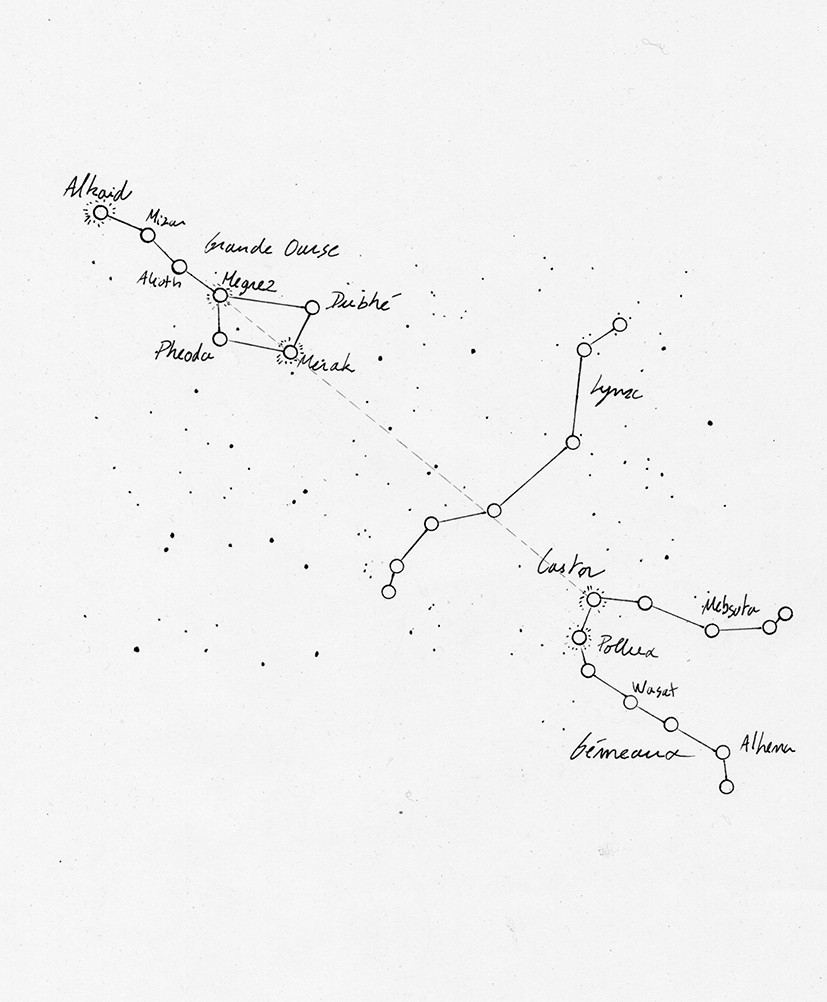 Alkaid
Mizar
Grande Ourse
Alioth
Megrez
Dubhé
Pheoda
Merak
Lynx
Castor
Mebsuta
Pollux
Wasat
Gémeaux
Alhena